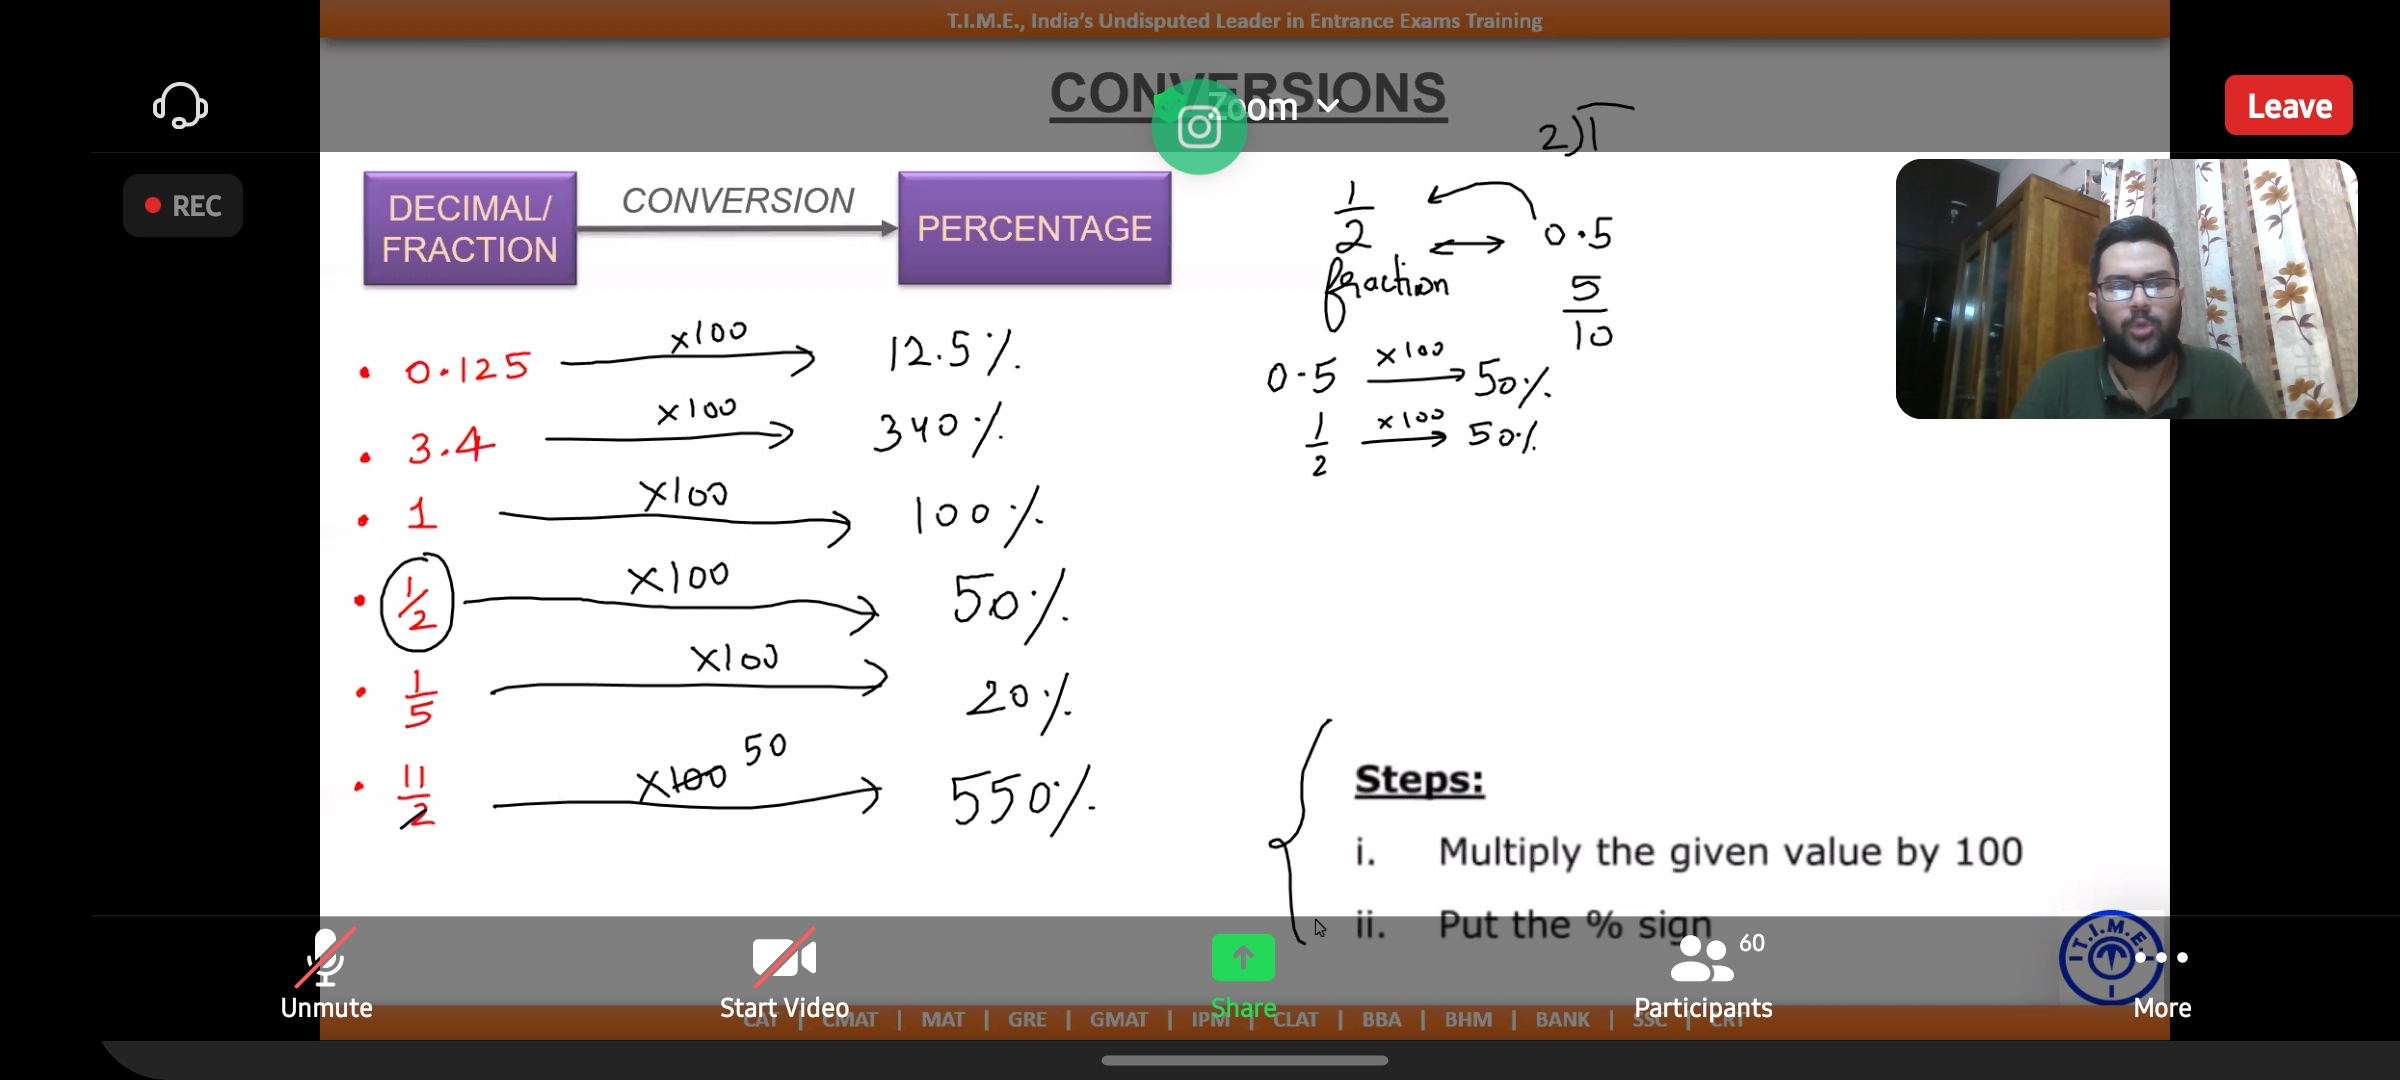 T.I.M.E., India's Undisputed Leader in Entrance Exams Training
CONVERSIONS
Zoom
Leave
REC
DECIMAL/
FRACTION
CONVERSION
PERCENTAGE
• 0.125 ×100 12.5%
• 3.4 ×100 340%
• 1 ×100 100%
• 1/2 ×100 50%
• 1/5 ×100 20%
• 11/2 ×100 50 550%
2)1
1/2 0.5
fraction
5/10
0.5 ×100 50%
1/2 ×100 50%
Steps:
i. Multiply the given value by 100
ii. Put the % sign
T.I.M.E.
Unmute
Start Video
Share
Participants
60
More
CAT | CMAT | MAT | GRE | GMAT | IPM | CLAT | BBA | BHM | BANK | SSC | CRT